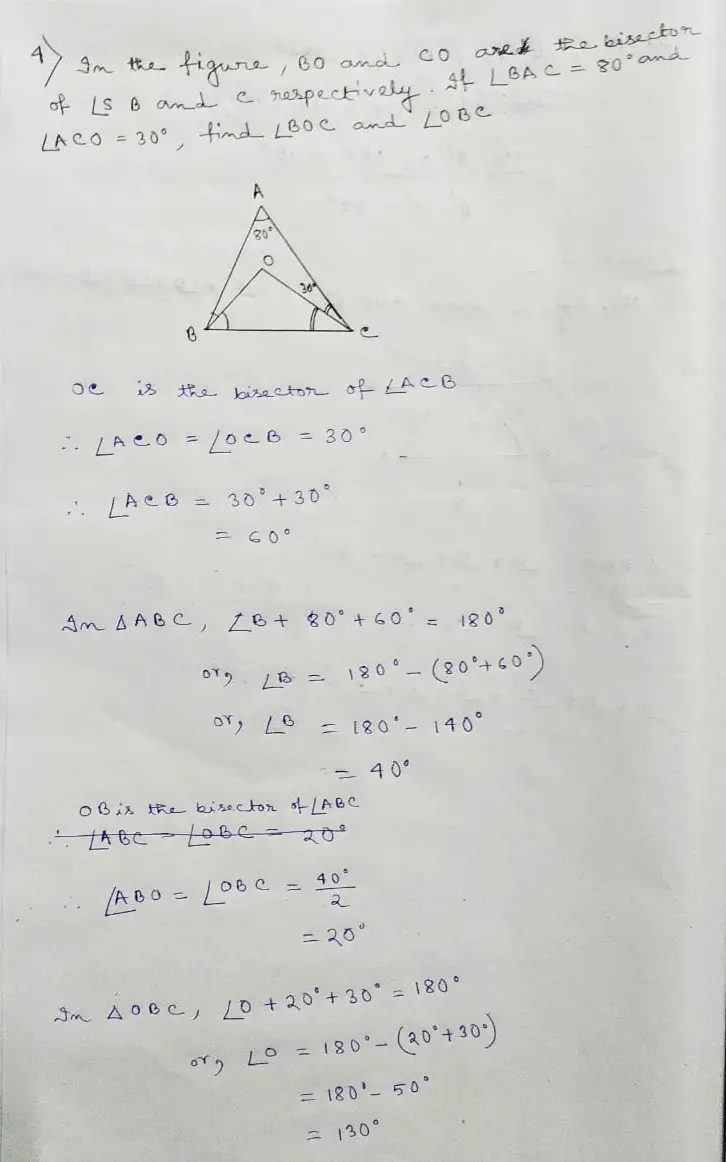 4) In the figure, BO and CO are the bisector
of ∠S B and C respectively. If ∠BAC = 80° and
∠ACO = 30°, find ∠BOC and ∠OBC
A
80°
O
30°
B
C
OC is the bisector of ∠ACB
∴ ∠ACO = ∠OCB = 30°
∴ ∠ACB = 30° + 30°
= 60°
In ΔABC, ∠B + 80° + 60° = 180°
or, ∠B = 180° - (80° + 60°)
or, ∠B = 180° - 140°
= 40°
OB is the bisector of ∠ABC
∴ ∠ABC = ∠OBC = 20°
∴ ∠ABO = ∠OBC = 40°/2
= 20°
In ΔOBC, ∠O + 20° + 30° = 180°
or, ∠O = 180° - (20° + 30°)
= 180° - 50°
= 130°